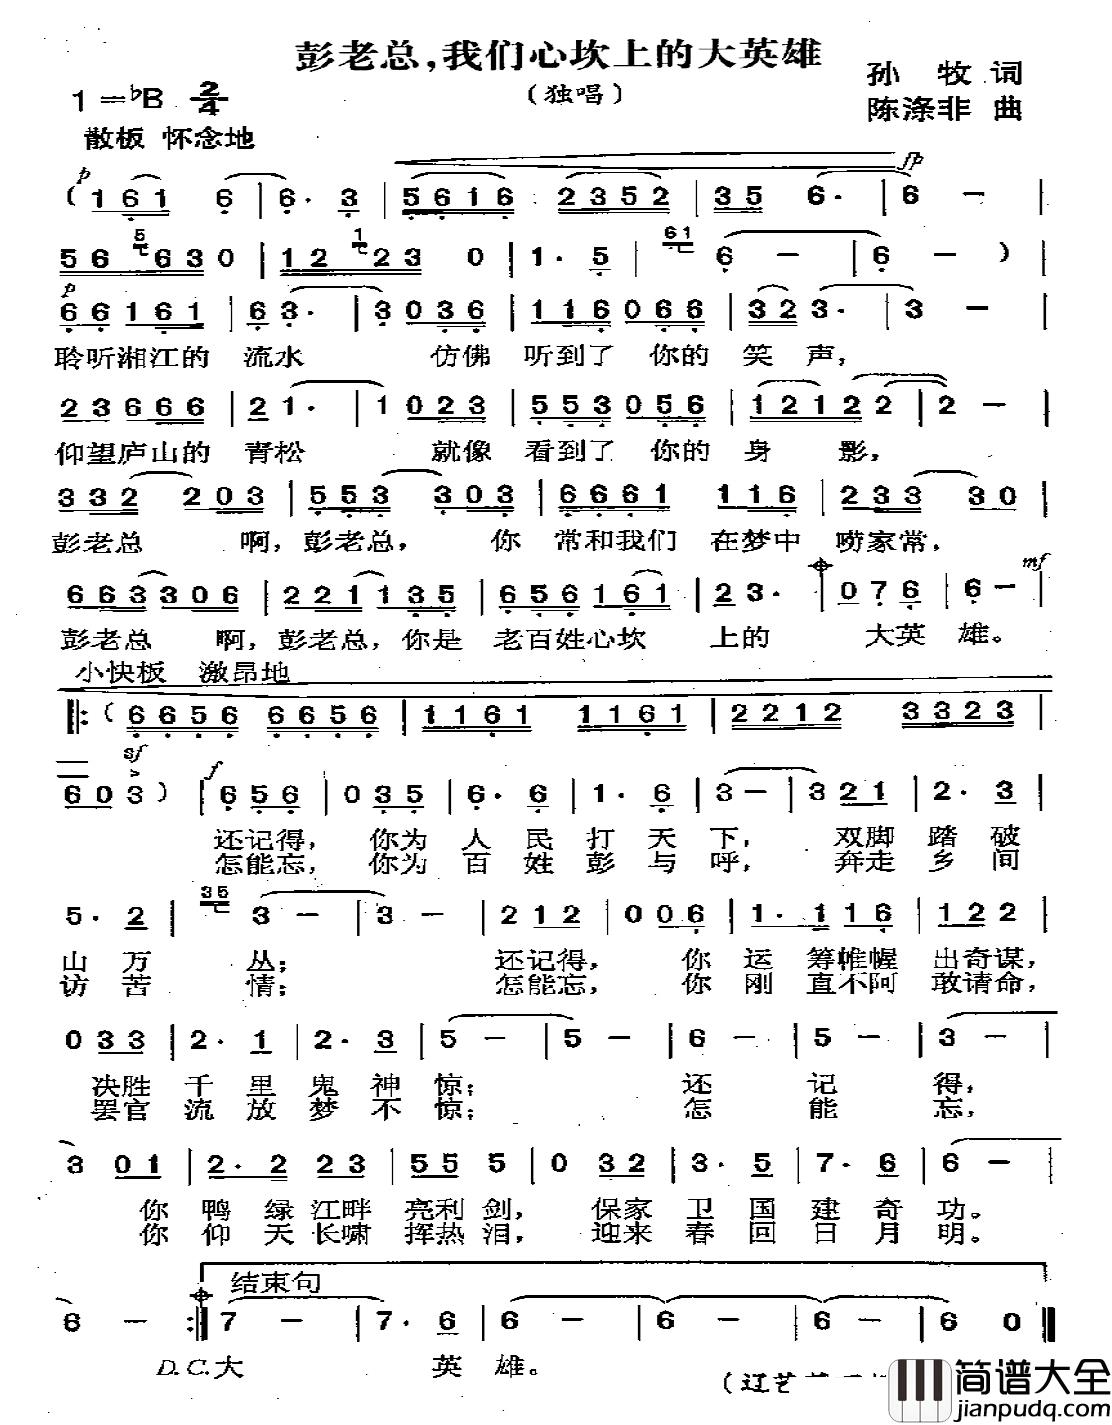 彭老总,我们心坎上的大英雄
(独唱)
孙 牧 词
陈涤非 曲
1=♭B 2/4
散板 怀念地
p fp
(1 6 1 6 | 6· 3 | 5 6 1 6 2 3 5 2 | 3 5 6· | 6 - |
5 6 5 6 3 0 | 1 2 1 2 3 0 | 1· 5 | 61 6 - | 6 - ) |
p
6 6 1 6 1 | 6 3· | 3 0 3 6 | 1 1 6 0 6 6 | 3 2 3· | 3 - |
聆听湘江的 流水 仿佛 听到了 你的 笑 声,
2 3 6 6 6 | 2 1· | 1 0 2 3 | 5 5 3 0 5 6 | 1 2 1 2 2 | 2 - |
仰望庐山的 青松 就像 看到了 你的 身 影,
3 3 2 2 0 3 | 5 5 3 3 0 3 | 6 6 6 1 1 1 6 | 2 3 3 3 0 |
彭老总 啊,彭老总, 你 常和我们 在梦中 唠家常,
mf
6 6 3 3 0 6 | 2 2 1 1 3 5 | 6 5 6 1 6 1 | 2 3· | 0 7 6 | 6 - |
彭老总 啊,彭老总,你是 老百姓心坎 上的 大英 雄。
小快板 激昂地
‖: (6 6 5 6 6 6 5 6 | 1 1 6 1 1 1 6 1 | 2 2 1 2 3 3 2 3 |
sf f
6 0 3 ) | 6 5 6 | 0 3 5 | 6· 6 | 1· 6 | 3 - | 3 2 1 | 2· 3 |
还记得, 你为 人 民 打 天 下, 双脚 踏 破
怎能忘, 你为 百 姓 彭 与 呼, 奔走 乡 间
5· 2 | 35 3 - | 3 - | 2 1 2 | 0 0 6 | 1· 1 1 6 | 1 2 2 |
山 万 丛; 还记得, 你 运 筹帷幄 出奇谋,
访 苦 情; 怎能忘, 你 刚 直不阿 敢请命,
0 3 3 | 2· 1 | 2· 3 | 5 - | 5 - | 6 - | 5 - | 3 - |
决胜 千 里 鬼 神 惊; 还 记 得,
罢官 流 放 梦 不 惊; 怎 能 忘,
3 0 1 | 2· 2 2 3 | 5 5 5 | 0 3 2 | 3· 5 | 7· 6 | 6 - |
你 鸭 绿 江畔 亮利 剑, 保家 卫 国 建 奇 功。
你 仰 天 长啸 挥热 泪, 迎来 春 回 日 月 明。
结束句
6 - :‖ 7 - | 7· 6 | 6 - | 6 - | 6 - | 6 0 ‖
D.C. 大 英 雄。
(辽艺
简谱大全
jianpudq.com